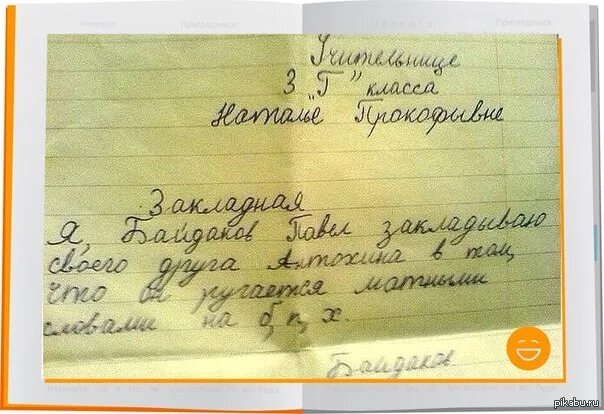 Учительнице
3 "Г" класса
Наталье Прокофьвне
Закладная
Я, Байдаков Павел закладываю
своего друга Антохина в том,
что он ругается матными
словами на б, п, х.
Байдаков
pikabu.ru